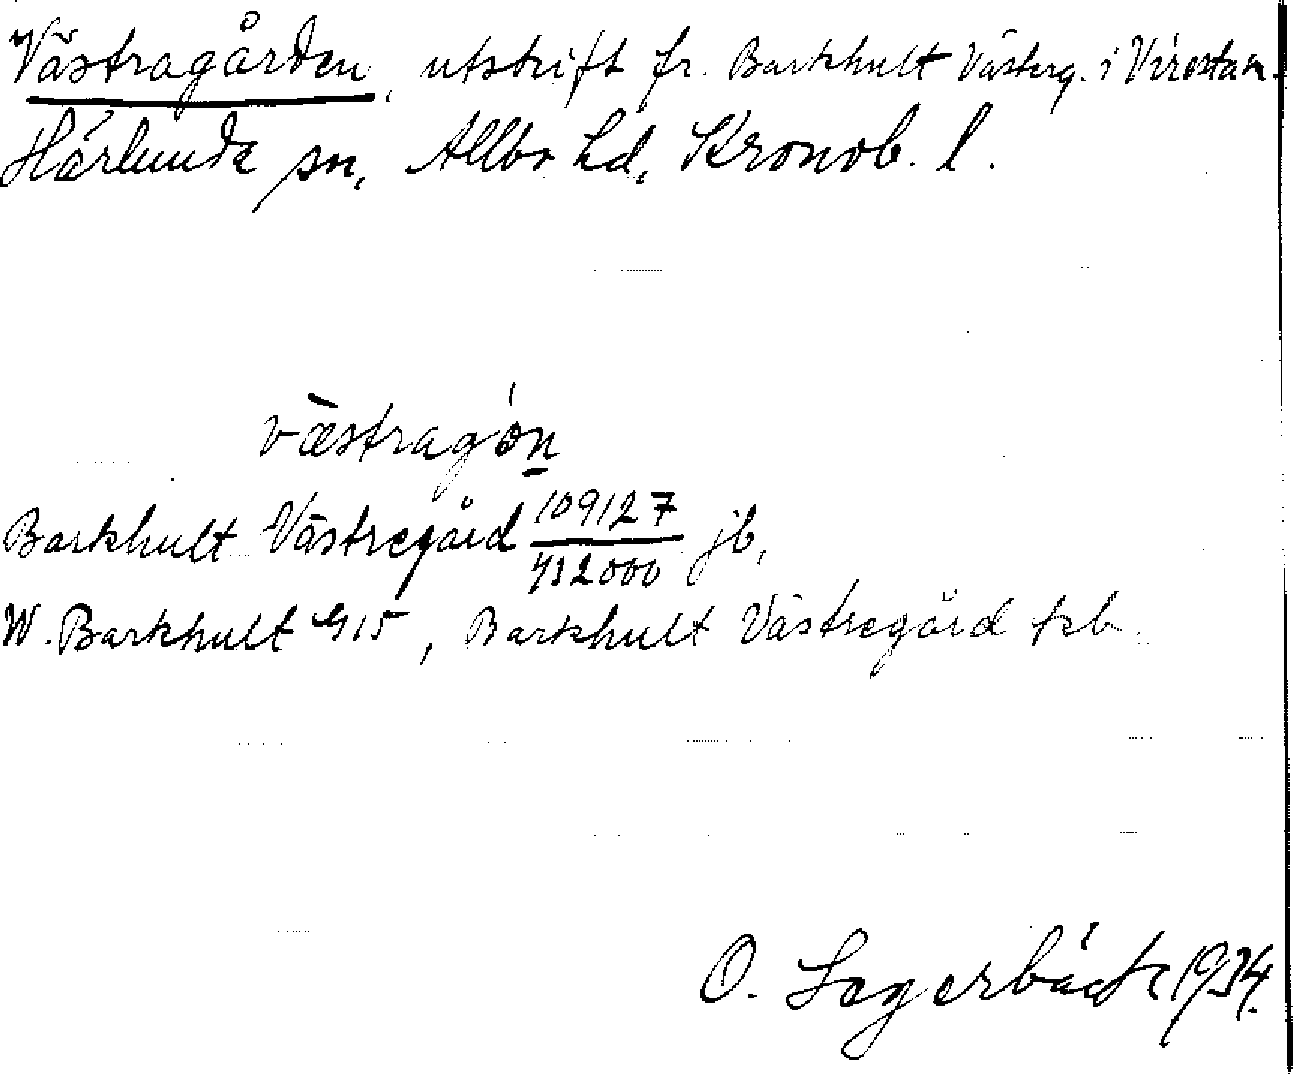 Västragården, utskrift fr. Barkhult Västerg. i Virestad
Härlunda sn, Allbo hd, Kronob. l.
væstragón
Barkhult Västregård 109127/432000 jb,
W. Barkhult 415, Barkhult Västregård kb.
O. Lagerbäck 1934.